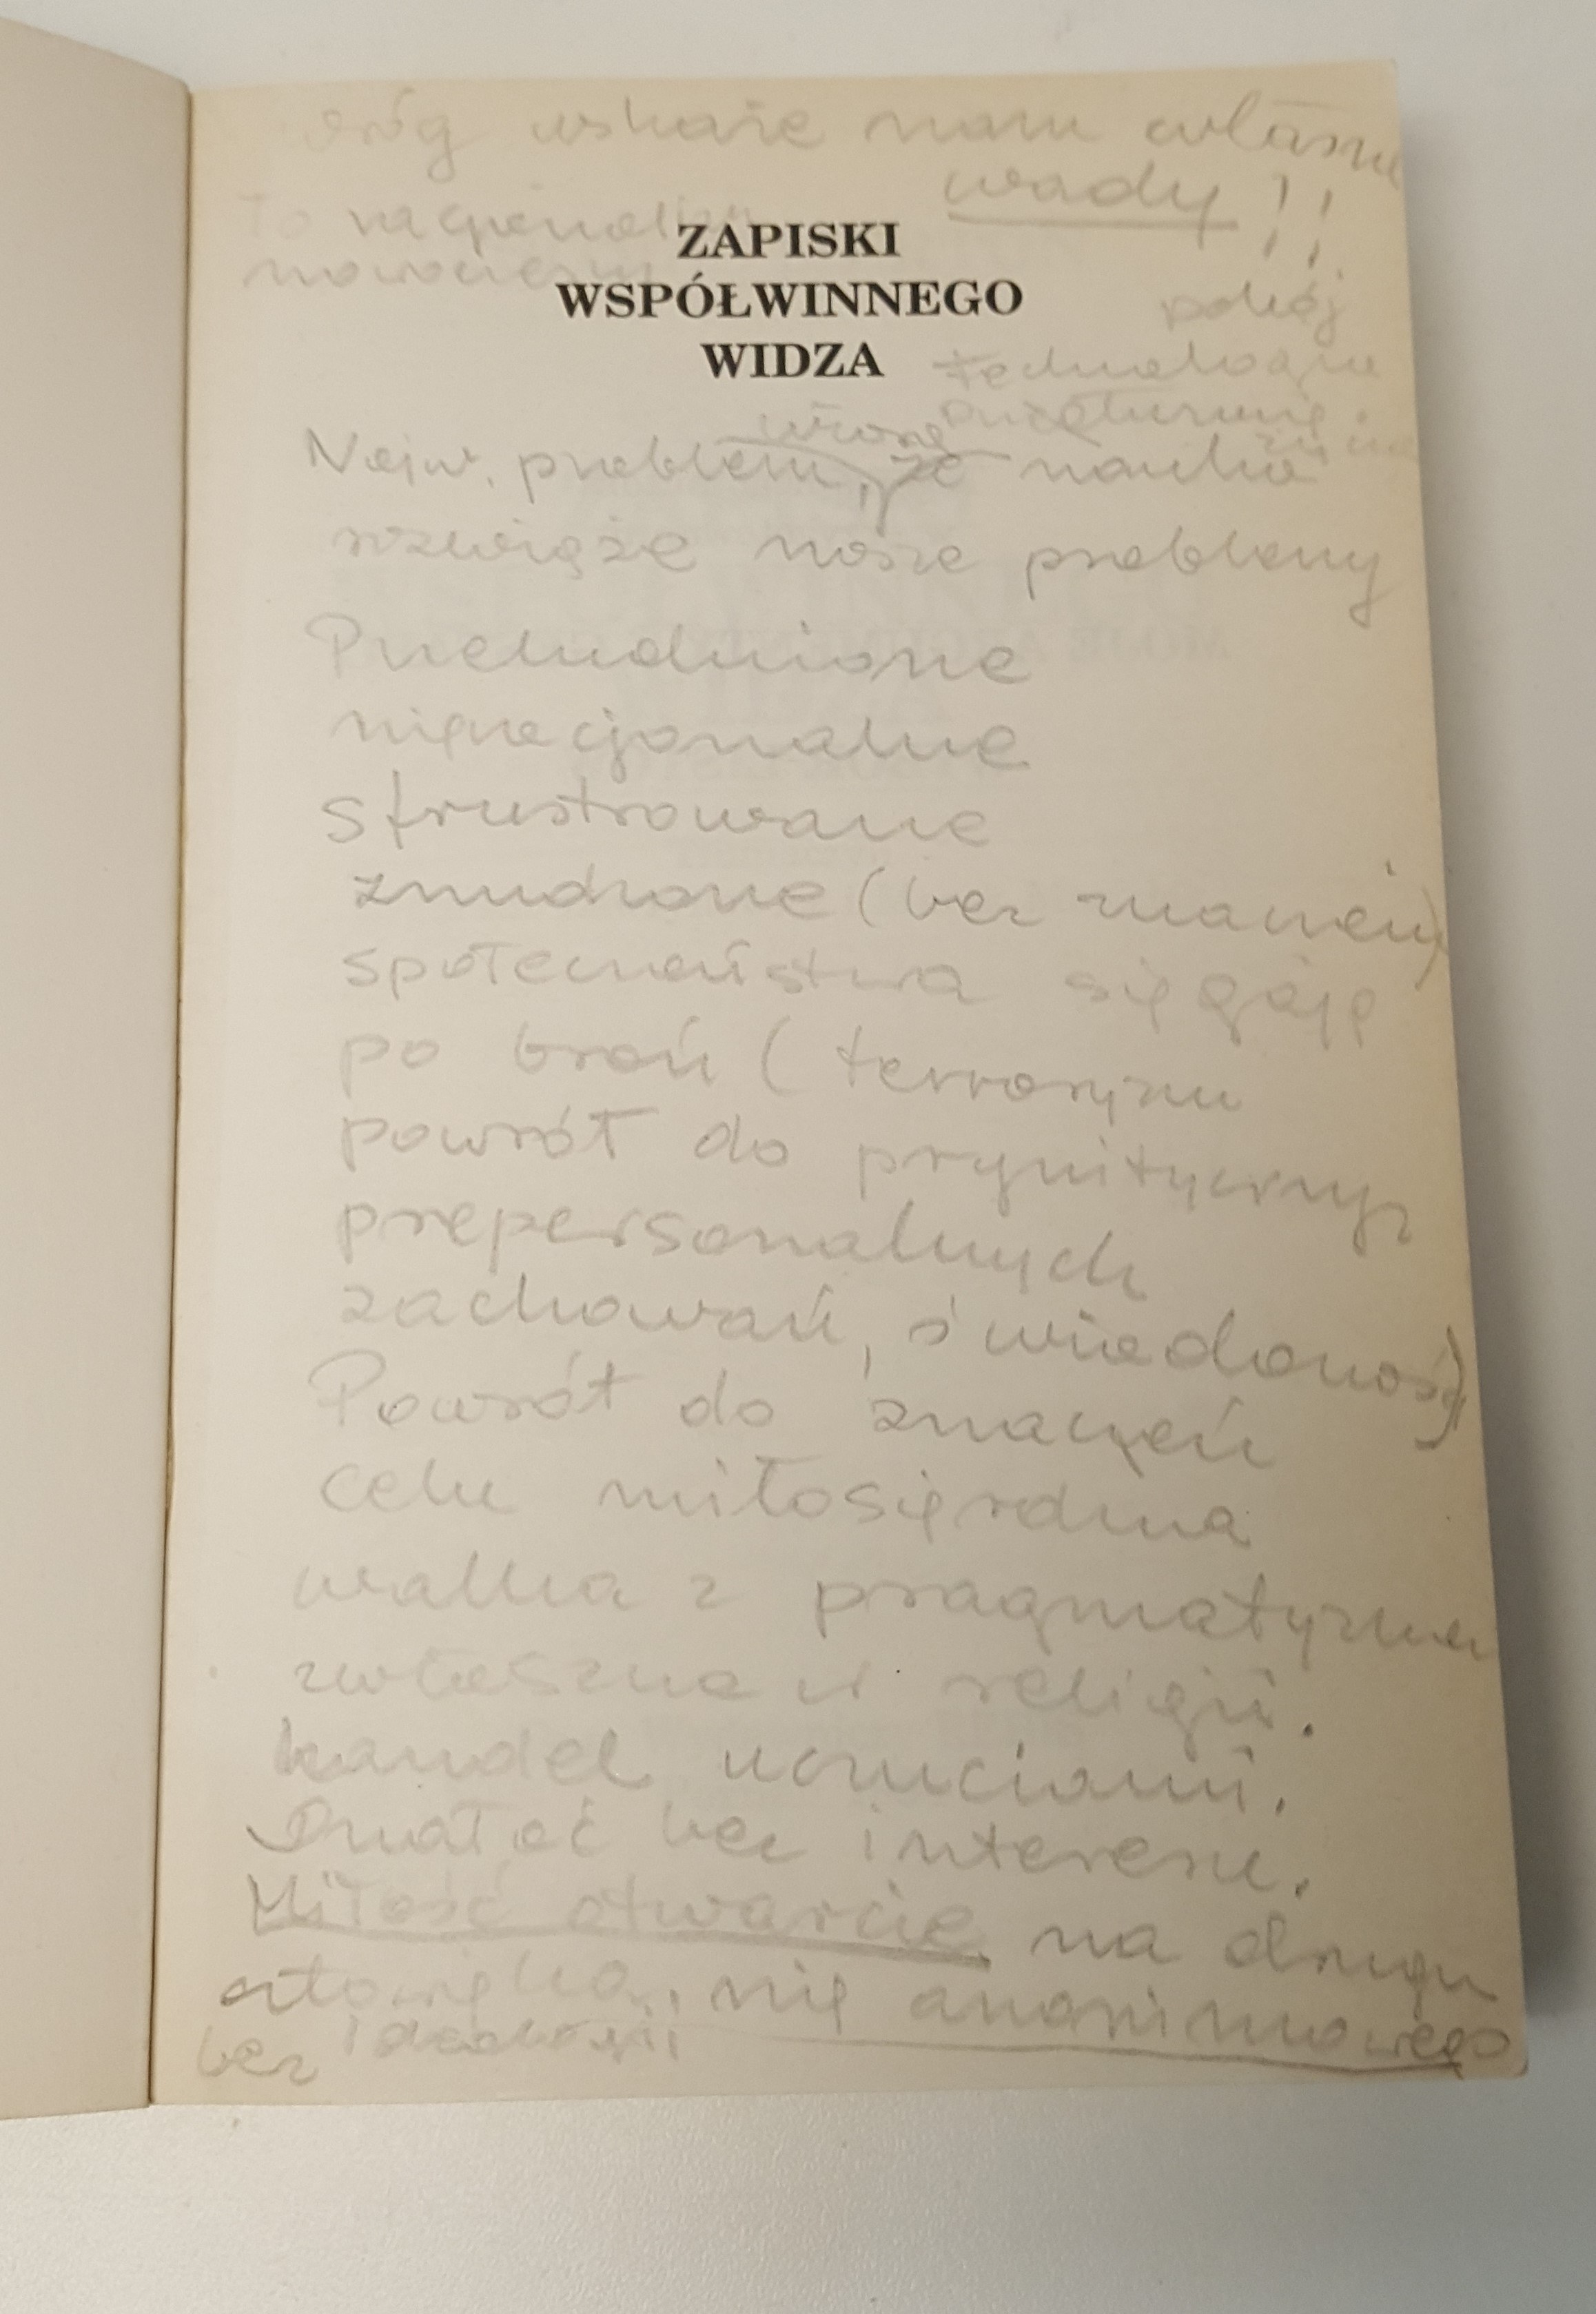 wróg wskaże nam własne
wady !!
To racjonalizm
nowoczesny
ZAPISKI
WSPÓŁWINNEGO
WIDZA
pokój
technologia
wiara
Najw. problem, że nauka
rozwiąże nasze problemy
Przeludnione
nieracjonalne
sfrustrowane
znudzone (bez znaczeń)
społeczeństwa sięgają
po broń (terroryzm
powrót do prymitywnych
prepersonalnych
zachowań, świadomości)
Powrót do znaczeń
celu miłosierdzia
walka z pragmatyzmem
zwłaszcza w religii.
handel uczuciami.
Działać bez interesu.
Miłość otwarcie na drugiego
człowieka, nie anonimowego
bez ideologii